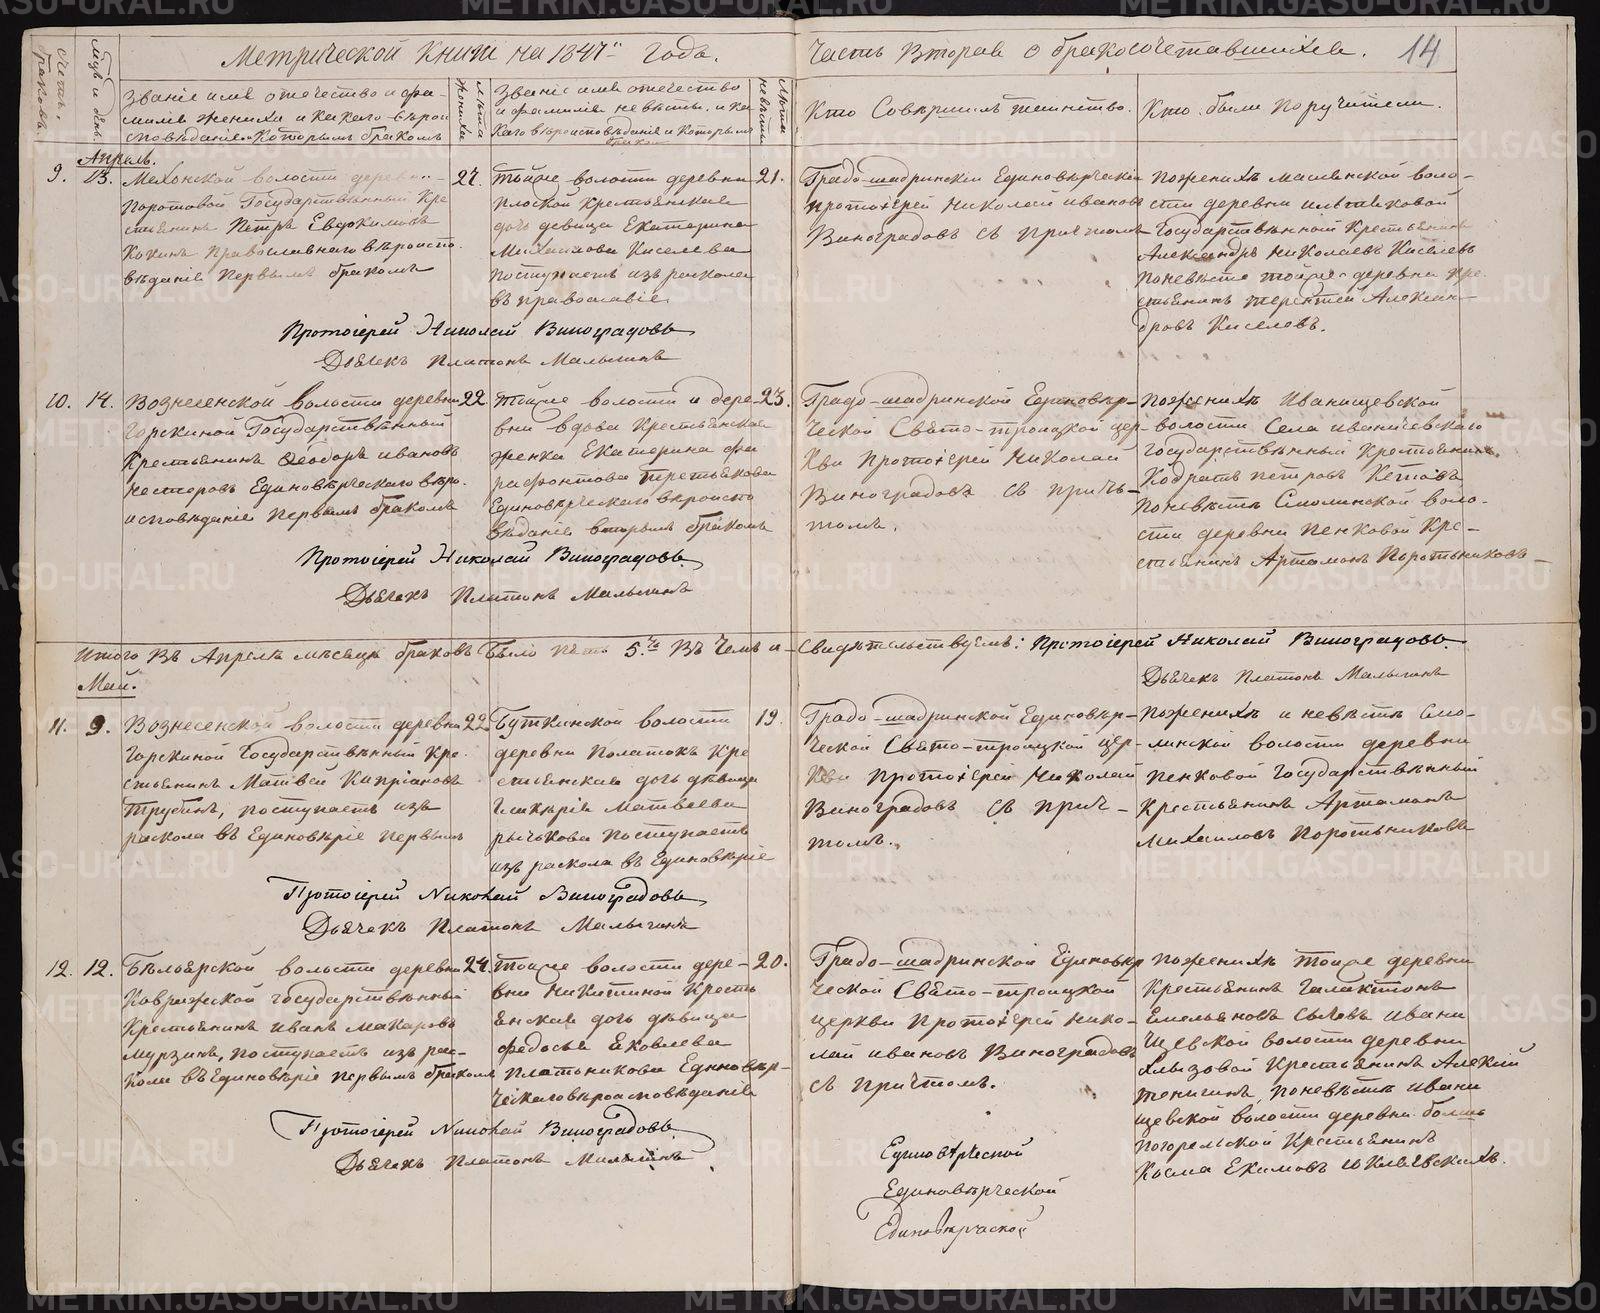 Метрической Книги на 1847 года.
Часть Вторая о бракосочетавшихся.
14
Счетъ браковъ.
Мѣсяцъ и день.
Званіе имя отечество и фа-
милія жениха и какаго вѣрои
сповѣданія и Которымъ бракомъ
лѣта жениха
Званіе имя отечество
и фамилія невѣсты, и ка
каго вѣроисповѣданія и Которымъ
бракомъ
лѣта невѣсты
Кто Совершилъ таинство.
Кто были Поручители.
Апрель.
9.
13.
Мехонской волости деревни
Поротовой Государственный Кре
стьянинъ Петръ Евдокимовъ
Кокинъ Православнаго вѣроиспо
вѣданія Первымъ бракомъ
27.
Тойже волости деревни
Плоской Крестьянская
дочь девица Екатерина
Михайлова Киселева
поступаетъ изъ раскола
въ православіе
21.
Градо-шадринскій Единовѣрческій
протоіерей Николай Ивановъ
Виноградовъ съ причтомъ
Поженихѣ Маслянской воло-
сти деревни
Государственной Крестьянинъ
Александръ Николаевъ Киселевъ
Поневѣсте тойже деревни Кре
стьянинъ Терентій Алексан-
дровъ Киселевъ.
Протоіерей Николай Виноградовъ
Дьячекъ Платонъ Малыгинъ
10.
14.
Вознесенской Волости деревни
Горскиной Государственный
Крестьянинъ Феодоръ Ивановъ
Нестеровъ Единовѣрческаго вѣро-
исповѣданія Первымъ бракомъ
22.
Тойже волости и дере-
вни вдова Крестьянская
женка Екатерина
Третьякова
Единовѣрческаго вѣроиспо
вѣданія вторымъ бракомъ
23.
Градо-шадринской Единовѣр-
ческой Свято-троицкой цер-
кви Протоіерей Николай
Виноградовъ съ причь-
томъ.
Поженихѣ Иванищевской
волости Села Иванищевскаго
Государственный Крестьянинъ
Кодратъ Петровъ Кетовъ
Поневѣсте Смолинской воло-
сти деревни Пенковой Кре-
стьянинъ Артамонъ Поротниковъ
Протоіерей Николай Виноградовъ.
Дьячекъ Платонъ Малыгинъ
Итого Въ Апрелѣ мѣсяцѣ браковъ Было пять 5.ть Въ чемъ и Свидѣтельствуемъ: Протоіерей Николай Виноградовъ.
Дьячекъ Платонъ Малыгинъ
Май.
11.
9.
Вознесенской волости деревни
Горскиной Государственный Кре
стьянинъ Матвей Кипріановъ
Трубинъ, поступаетъ изъ
раскола въ Единовѣріе первымъ
22
Буткинской волости
деревни Полатокъ Кре
стьянская дочь дѣвица
Гликерія Матвеева
Рычкова Поступаетъ
изъ раскола въ Единовѣріе
19.
Градо-шадринской Единовѣр-
ческой Свято-троицкой цер-
кви протоіерей Николай
Виноградовъ съ прич-
томъ.
Поженихѣ и невѣстѣ Смо-
линской волости деревни
Пенковой Государственный
Крестьянинъ Артамонъ
Михаиловъ Поротниковъ
Протоіерей Николай Виноградовъ
Дьячекъ Платонъ Малыгинъ
12.
12.
Бѣлоярской волости деревни
Коврижской государственный
Крестьянинъ Иванъ Макаровъ
Мурзинъ, поступаетъ изъ рас-
кола въ Единовѣріе первымъ бракомъ
24.
Тойже волости дере-
вни Никитиной Кресть
янская дочь дѣвица
Федосья Яковлева
Плотникова Единовѣр-
ческаго вѣроисповѣданія
20.
Градо-шадринской Единовѣр
ческой Свято-троицкой
церкви Протоіерей Нико-
лай Ивановъ Виноградовъ
съ Причтомъ.
Поженихѣ тойже деревни
Крестьянинъ Галактіонъ
Емельяновъ Сычевъ Ивани
щевской волости деревни
Крестьянинъ Алексій
поневѣстѣ Ивани
щевской волости деревни
Крестьянинъ
Козма Екимовъ
Протоіерей Николай Виноградовъ
Дьячекъ Платонъ Малыгинъ.
Единовѣрческой
Единовѣрческой
Единовѣрческой
METRIKI.GASO-URAL.RU